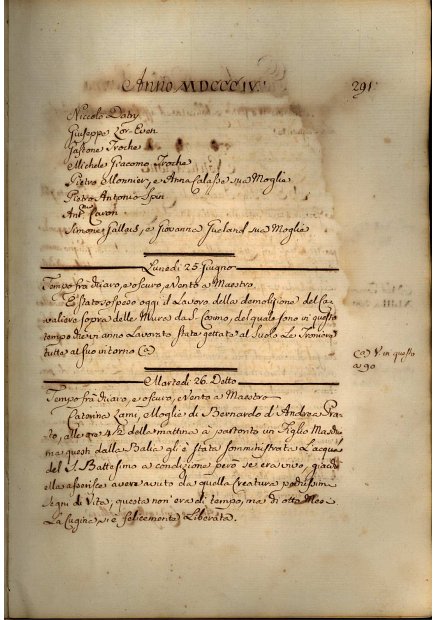 Anno MDCCCIV.
291
Niccolo Daby
Giuseppe Lor-Evon
Gastone Troche
Michele Giacomo Troche
Pietro Monnier, e Anna Calasse sua Moglie
Pietro Antonio Spin
Ant. Caron
Simone Galleus, e Giovanna Gueland sua Moglie
Lunedi 25 Giugno
Tempo frà chiaro, e oscuro, e Vento a Maestro.
È stato sospeso oggi il Lavoro della demolizione del Ca-
valiero sopra delle Mura da S. Cosmo, del quale sono in questo
tempo dieci anno Lavorato state gettata al Suolo Le Troniere
tutte al suo intorno (a)
(a) V. in questo
a 90
Martedi 26. Detto
Tempo frà chiaro, e oscuro, e Vento a Maestro
Caterina Lami, Moglie di Bernardo di Andrea Pra-
to, alle ore 4½ della mattina à partorito un Figlio Maschio
ma questi dalla Balia gli è stata somministrata L'acqua
del S. Battesimo a condizione però se era vivo, giacchè
ella asserisce avere avuto da quella Creatura pochissimi
segni di Vita, questa non era di tempo, ma di otto Mesi
La Cugina si è felicemente Liberata.